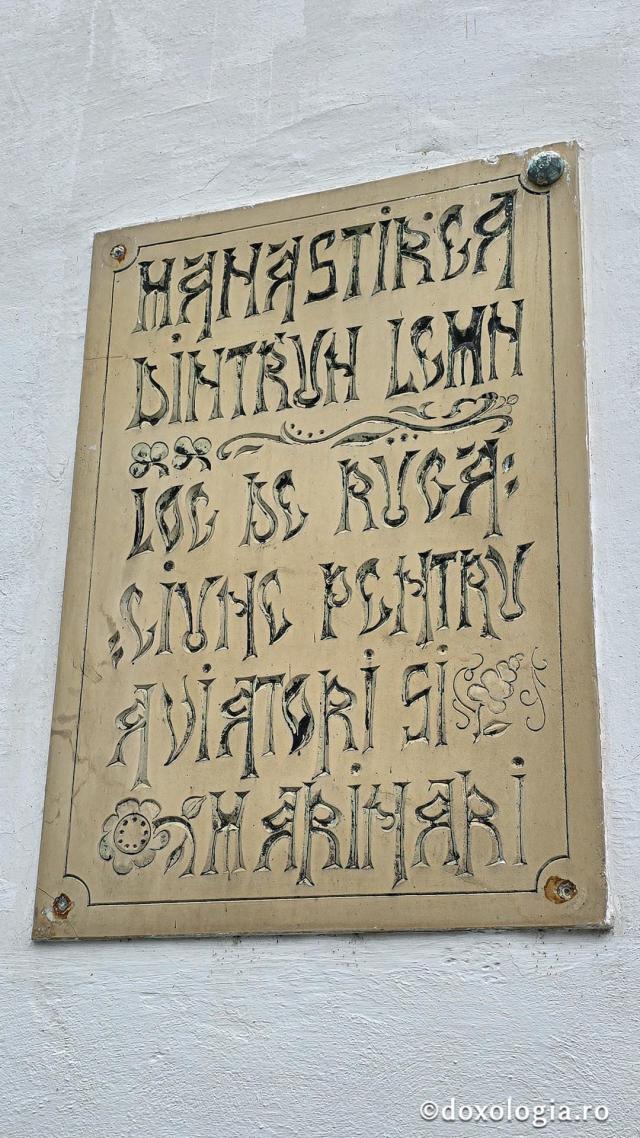 MĂNĂSTIREA
DINTRUN LEMN
LOC DE RUGĂ:
:CIUNE PENTRU
AVIATORI SI
MARINARI
©doxologia.ro